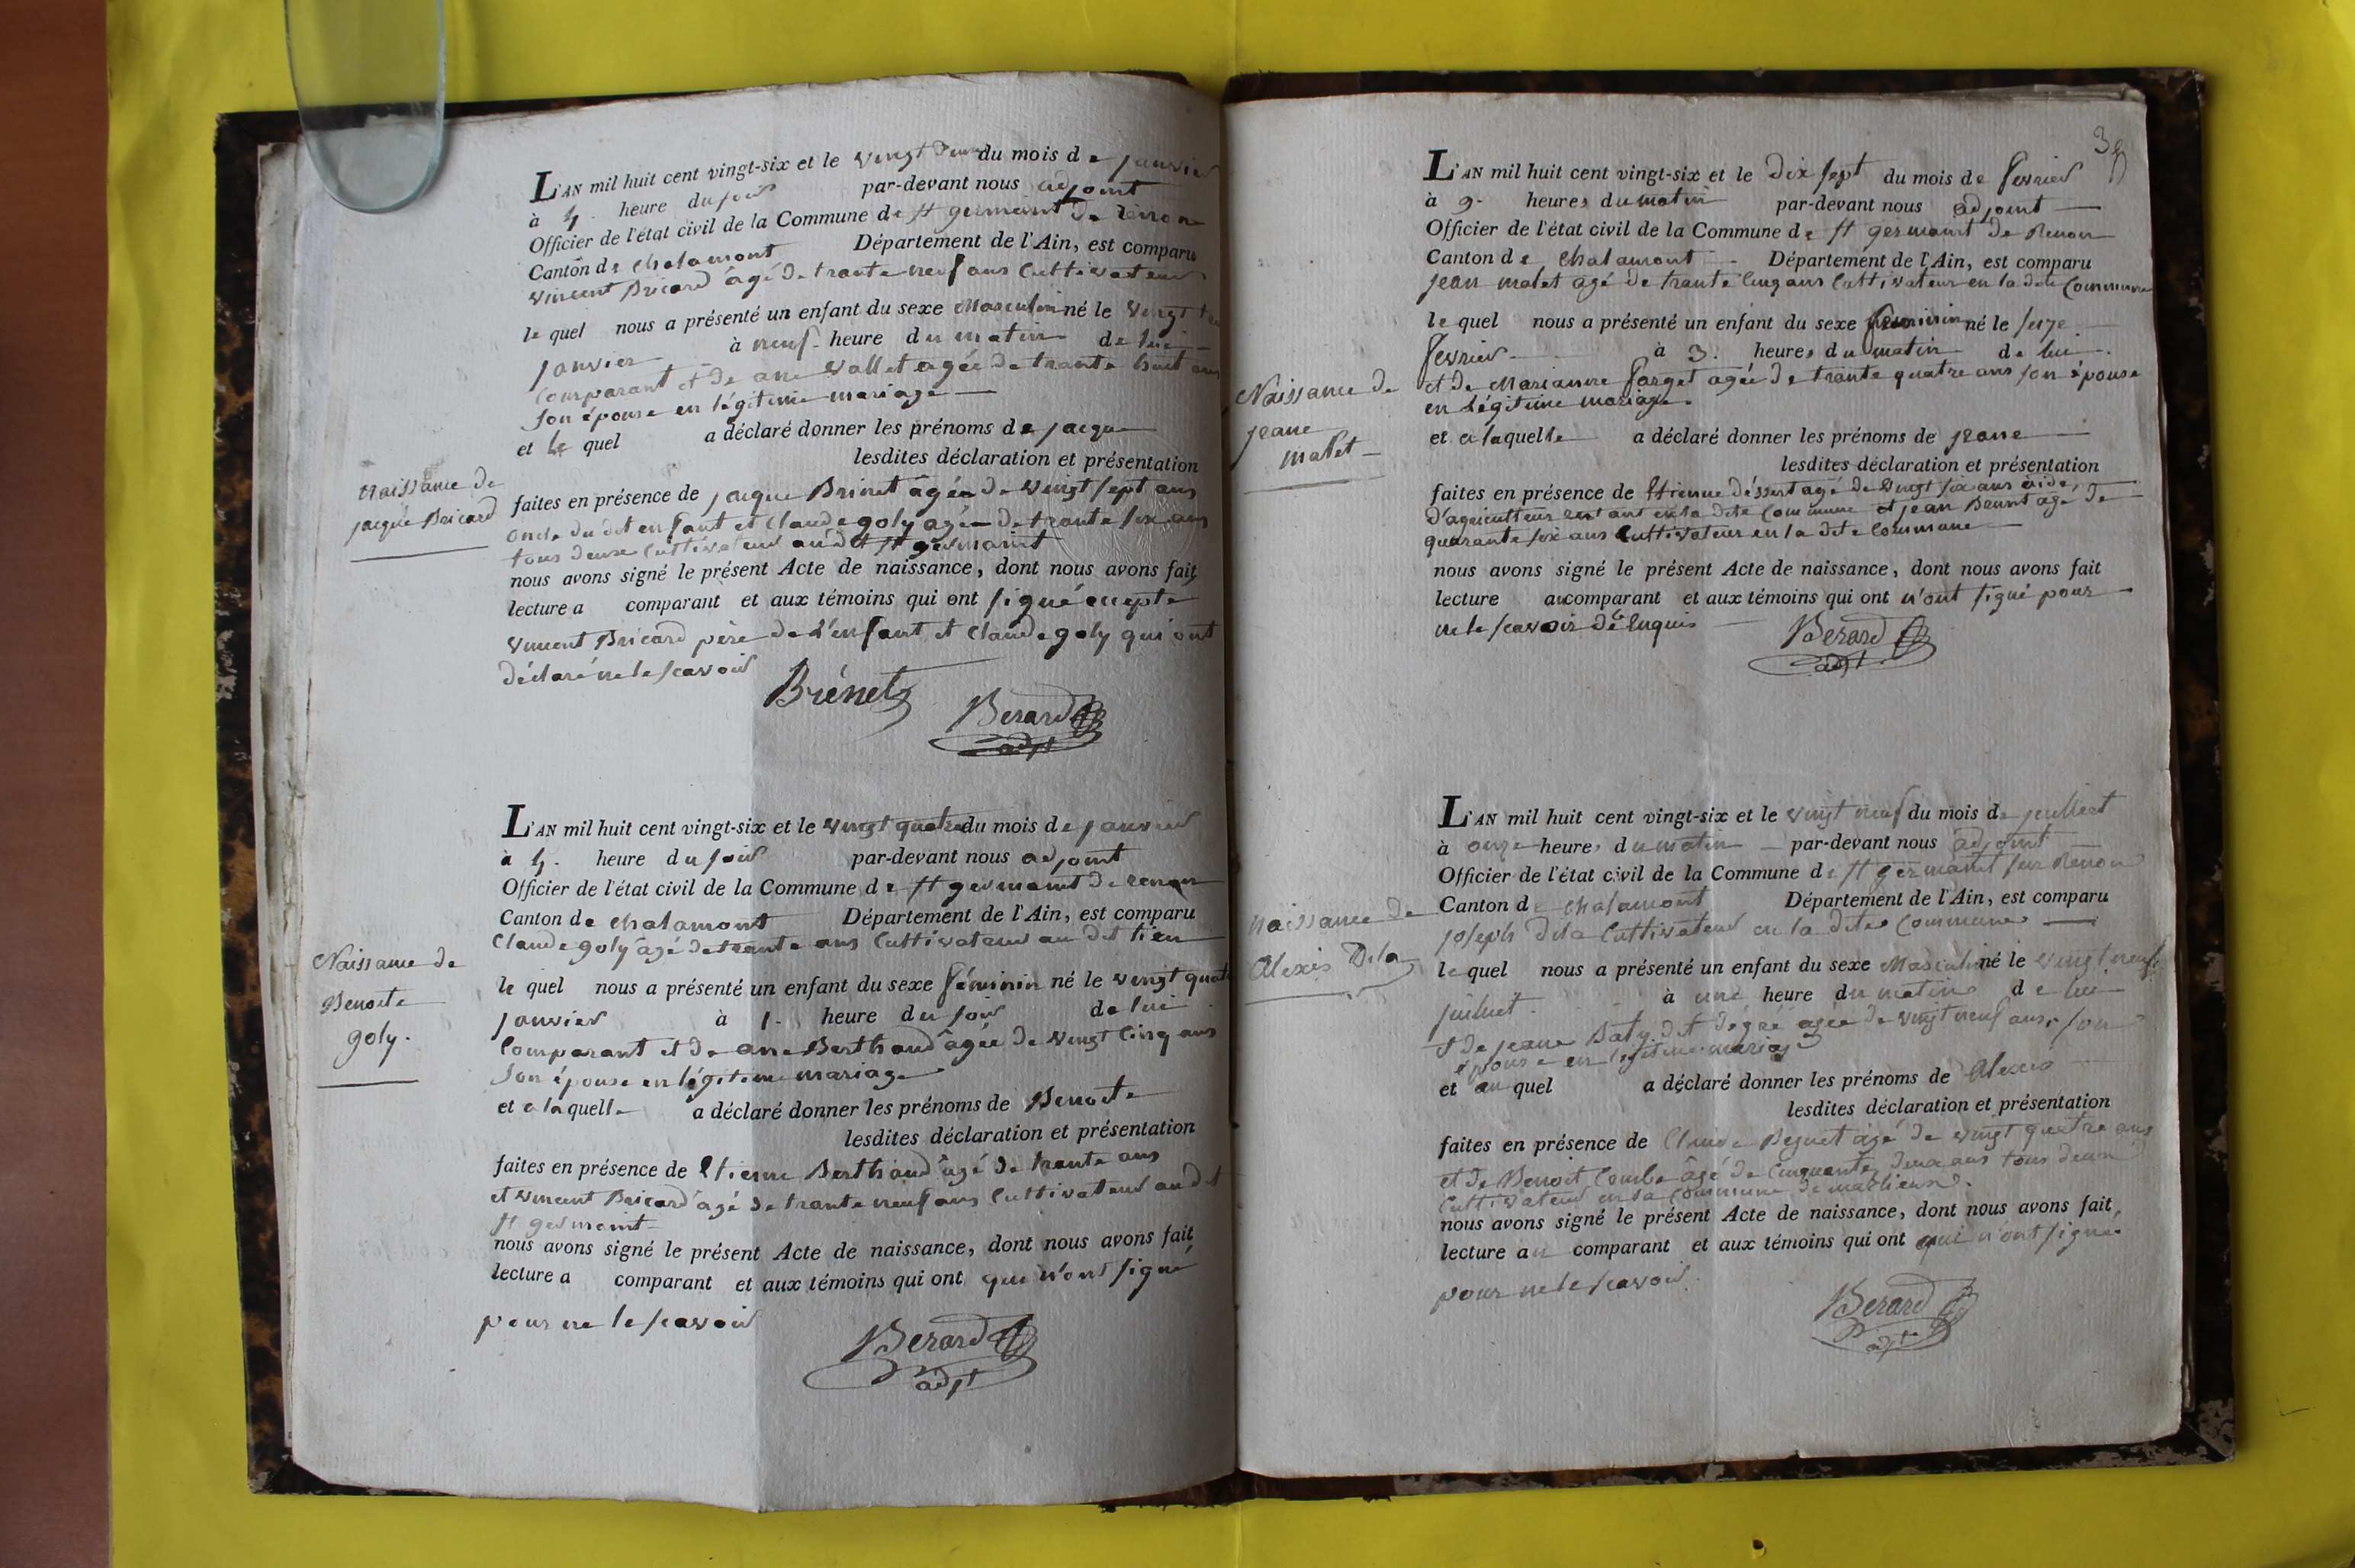 L'AN mil huit cent vingt-six et le vingt deux du mois de janvier
à 4. heure du soir par-devant nous adjoint
Officier de l'état civil de la Commune de st germaint de renon
Canton de chalamont Département de l'Ain, est comparu
vincent Bricard âgé de trante neuf ans Cultivateur
le quel nous a présenté un enfant du sexe Masculin né le vingt
janvier à neuf heure du matin de lui
Comparant et de ane vallet agée de trante huit ans
son épouse en légitime mariage
et le quel a déclaré donner les prénoms de jacque
lesdites déclaration et présentation
Naissance de
jacque Bricard
faites en présence de jacque Brinet âgée de vingt sept ans
oncle du dit enfant et Claude goly agée de trante six ans
tous deux Cultivateur au dit st germaint
nous avons signé le présent Acte de naissance, dont nous avons fait
lecture a comparant et aux témoins qui ont signé excepte
vincent Bricard père de l'enfant et Claude goly qui ont
déclaré ne le scavoir
Brénet
Berard
adjt
L'AN mil huit cent vingt-six et le vingt quatre du mois de janvier
à 4. heure du soir par-devant nous adjoint
Officier de l'état civil de la Commune de st germaint de renon
Canton de chalamont Département de l'Ain, est comparu
Claude goly âgé de trante ans Cultivateur au dit lieu
Naissance de
Benoite
goly.
le quel nous a présenté un enfant du sexe féminin né le vingt quatre
janvier à 1. heure du soir de lui
Comparant et de ane Berthaud âgée de vingt Cinq ans
son épouse en légitime mariage
et a laquelle a déclaré donner les prénoms de Benoite
lesdites déclaration et présentation
faites en présence de Etienne Berthaud âgé de trante ans
et vincent Bricard âgé de trante neuf ans Cultivateur au dit
st germaint
nous avons signé le présent Acte de naissance, dont nous avons fait
lecture a comparant et aux témoins qui ont qui n'ont signé
pour ne le scavoir
Berard
adjt
L'AN mil huit cent vingt-six et le dix sept du mois de fevrier
à 9. heures du matin par-devant nous adjoint
Officier de l'état civil de la Commune de st germaint de Renon
Canton de chalamont Département de l'Ain, est comparu
jean malet agé de trante Cinq ans Cultivateur en la dite Commune
le quel nous a présenté un enfant du sexe feminin né le seize
fevrier à 3. heures du matin de lui
Naissance de
jeane
malet
et de Marianne farget agée de trante quatre ans son épouse
en légitime mariage.
et a laquelle a déclaré donner les prénoms de jeane
lesdites déclaration et présentation
faites en présence de Etienne déssert agé de vingt six ans aide
d'agriculteur restant en la dite Commune et jean Brunt agé de
quarante six ans Cultivateur en la dite Commune
nous avons signé le présent Acte de naissance, dont nous avons fait
lecture au comparant et aux témoins qui ont n'ont signé pour
ne le scavoir de enquis
Berard
adjt.
L'AN mil huit cent vingt-six et le vingt neuf du mois de juilliet
à onze heures du matin par-devant nous adjoint
Officier de l'état civil de la Commune de st germaint sur Renon
Canton de chalamont Département de l'Ain, est comparu
joseph Dela Cultivateur en la dite Commune
Naissance de
Alexis Dela
le quel nous a présenté un enfant du sexe Masculin né le vingt neuf
juilliet à une heure du matin de lui
et de jeane Baty dit dégré agée de vingt neuf ans, son
épouse en légitime mariage
et au quel a déclaré donner les prénoms de Alexis
lesdites déclaration et présentation
faites en présence de Claude Peguet agé de vingt quatre ans
et de Benoit Combe âgé de Cinquante deux ans tous deux
Cultivateur en la Commune de marlieux.
nous avons signé le présent Acte de naissance, dont nous avons fait
lecture au comparant et aux témoins qui ont qui n'ont signé
pour ne le scavoir.
Berard
adjt